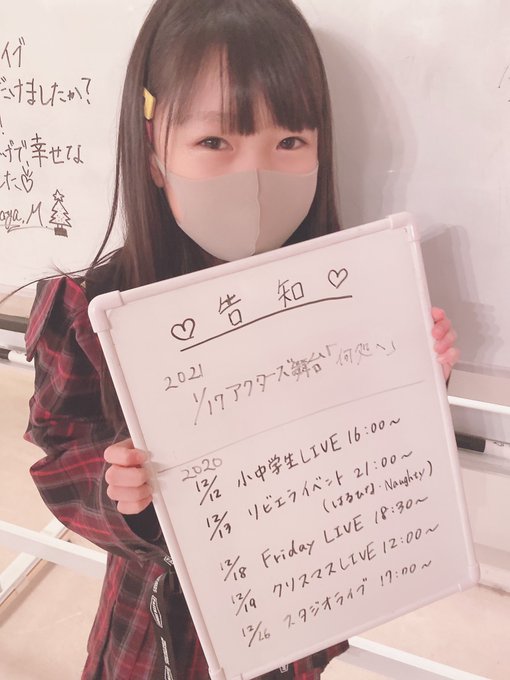 イブ
だけましたか？
!
げで、幸せな
した♡
♡ 告知 ♡
2021
1/17 アクターズ舞台「何処へ」
2020
12/12 小中学生LIVE 16:00～
12/13 リビエライベント 21:00～
(はるひな・Naughty)
12/18 Friday LIVE 18:30～
12/19 クリスマスLIVE 12:00～
12/26 スタジオライブ 17:00～